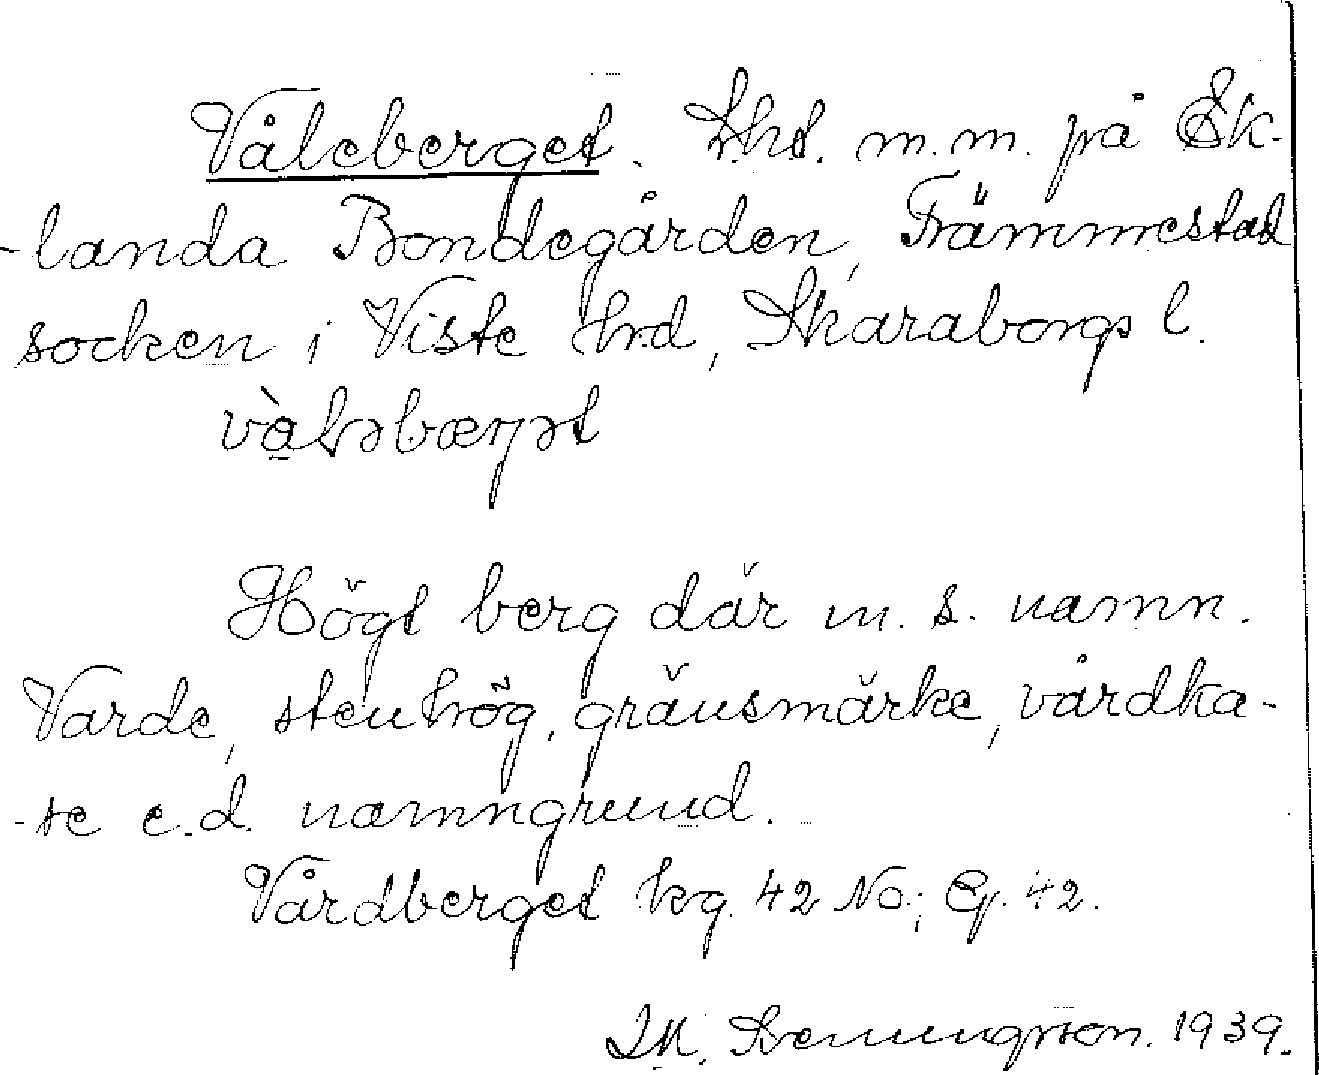 Våleberget. Lht. m.m. på Ek-
-landa Bondegården, Främmestad
socken i Viste hrd, Skaraborgs l.
Högt berg där m. s. namn.
Varde, stenhög, gränsmärke, vårdka-
-se e.d. namngrund.
Vårdberget kg. 42 No.; Eg. 42.
1939.